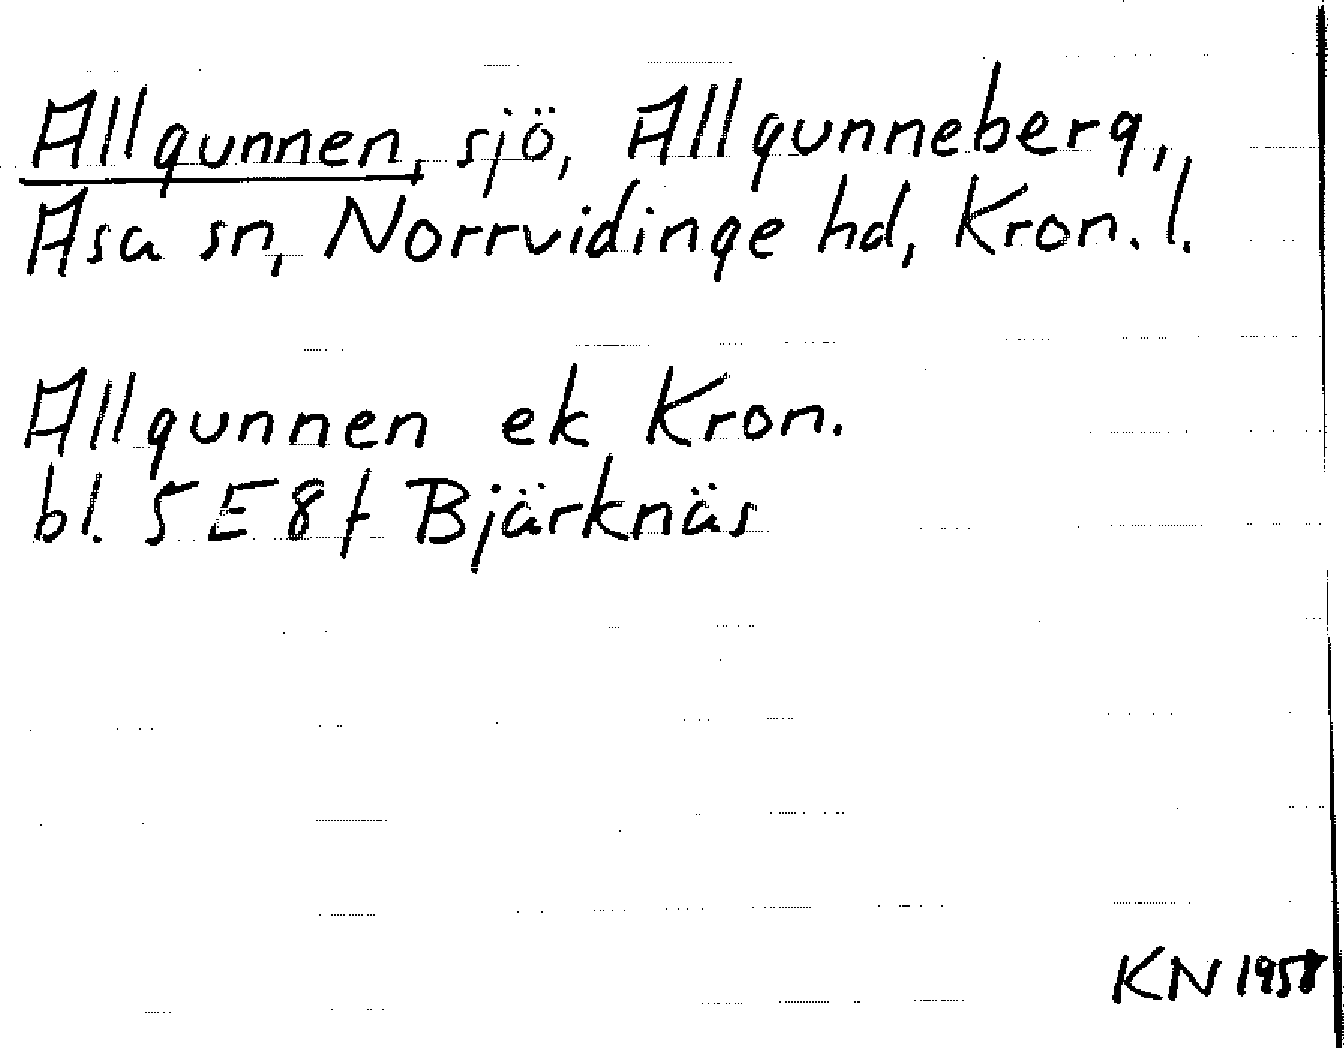 Allgunnen, sjö, Allgunneberg,
Asa sn, Norrvidinge hd, Kron. l.
Allgunnen ek Kron.
bl. 5E8f Bjärknäs
KN